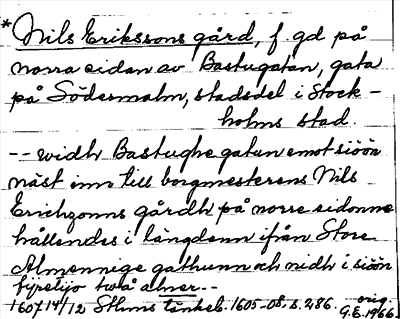 *Nils Erikssons gård, f. gd på
norra sidan av Bastugatan, gata
på Södermalm, stadsdel i Stock-
holms stad.
-- widh Bastughe gatan emot siöön
näst inn till borgmesterens Nils
Erichzonns gårdh på norre sidonne
hållendes i längdenn ifrån Store
Almennige gathunn och nidh i siön
fyretijo twå alner --
1607 14/12 Sthms tänkeb. 1605-08. s. 286. orig.
G.E. 1966